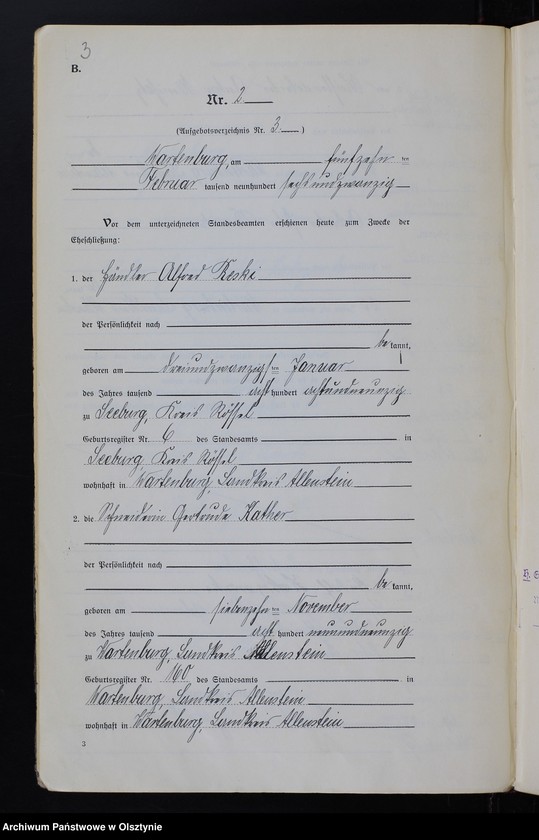 3
B.
Nr. 2
(Aufgebotsverzeichnis Nr. 3)
Wartenburg, am fünfzehn ten
Februar tausend neunhundert sechsundzwanzig
Vor dem unterzeichneten Standesbeamten erschienen heute zum Zwecke der
Eheschließung:
1. der Händler Alfred Keski
der Persönlichkeit nach
bekannt,
geboren am dreiundzwanzigsten Januar
des Jahres tausend acht hundert achtundneunzig
zu Seeburg, Kreis Rössel
Geburtsregister Nr. 6 des Standesamts in
Seeburg, Kreis Rössel
wohnhaft in Wartenburg, Landkreis Allenstein
2. die Schneiderin Gertrude Kather
der Persönlichkeit nach
bekannt,
geboren am siebenzehn ten November
des Jahres tausend acht hundert neunundneunzig
zu Wartenburg, Landkreis Allenstein
Geburtsregister Nr. 160 des Standesamts in
Wartenburg, Landkreis Allenstein
wohnhaft in Wartenburg, Landkreis Allenstein
3
Archiwum Państwowe w Olsztynie